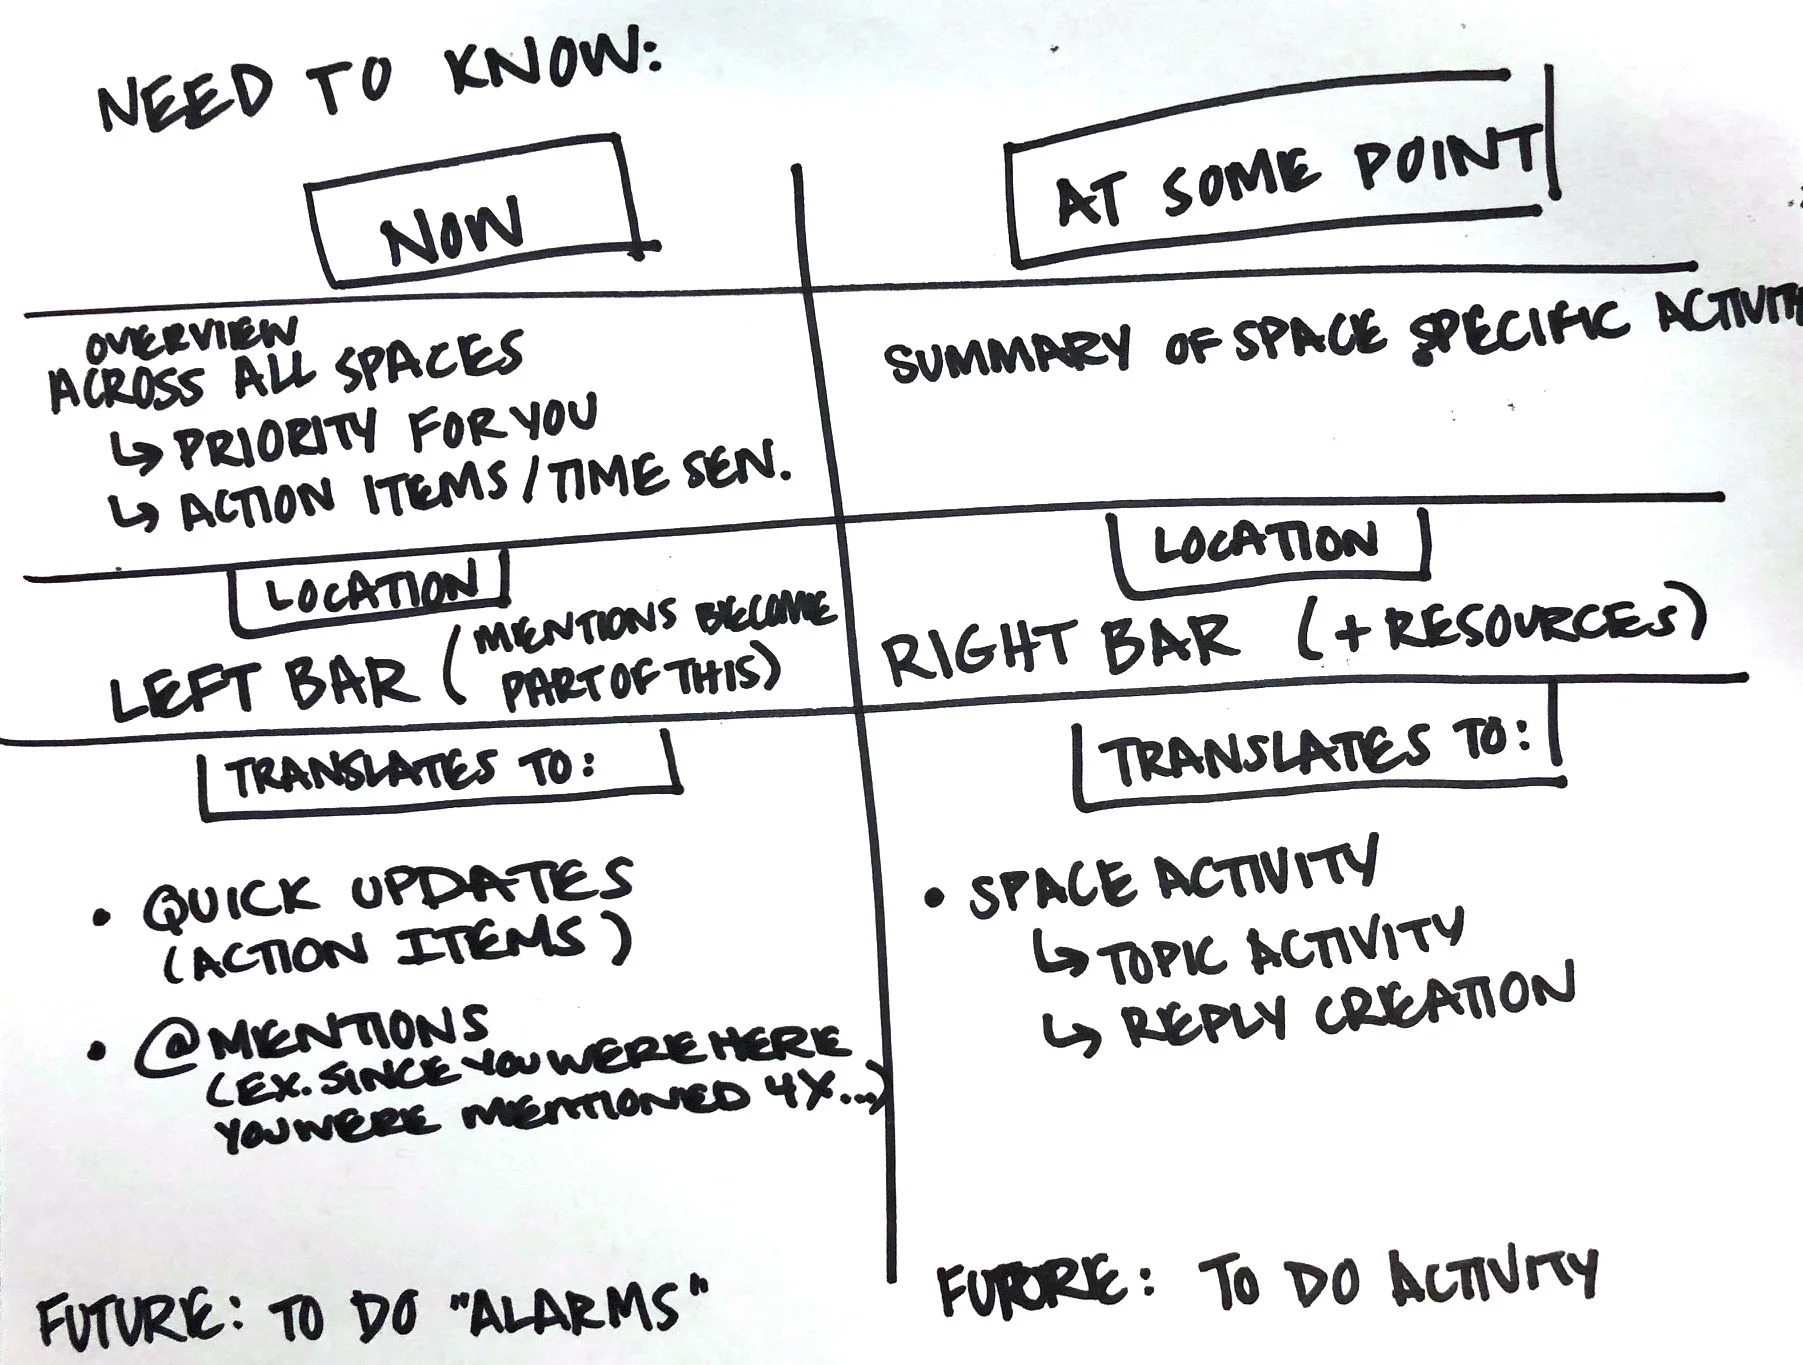 NEED TO KNOW:
NOW
OVERVIEW
ACROSS ALL SPACES
↳ PRIORITY FOR YOU
↳ ACTION ITEMS / TIME SEN.
LOCATION
LEFT BAR (MENTIONS BECOME
PART OF THIS)
TRANSLATES TO:
• QUICK UPDATES
(ACTION ITEMS)
• @MENTIONS
(EX. SINCE YOU WERE HERE
YOU WERE MENTIONED 4X...)
FUTURE: TO DO "ALARMS"
AT SOME POINT
SUMMARY OF SPACE SPECIFIC ACTIVITY
LOCATION
RIGHT BAR (+ RESOURCES)
TRANSLATES TO:
• SPACE ACTIVITY
↳ TOPIC ACTIVITY
↳ REPLY CREATION
FUTURE: TO DO ACTIVITY